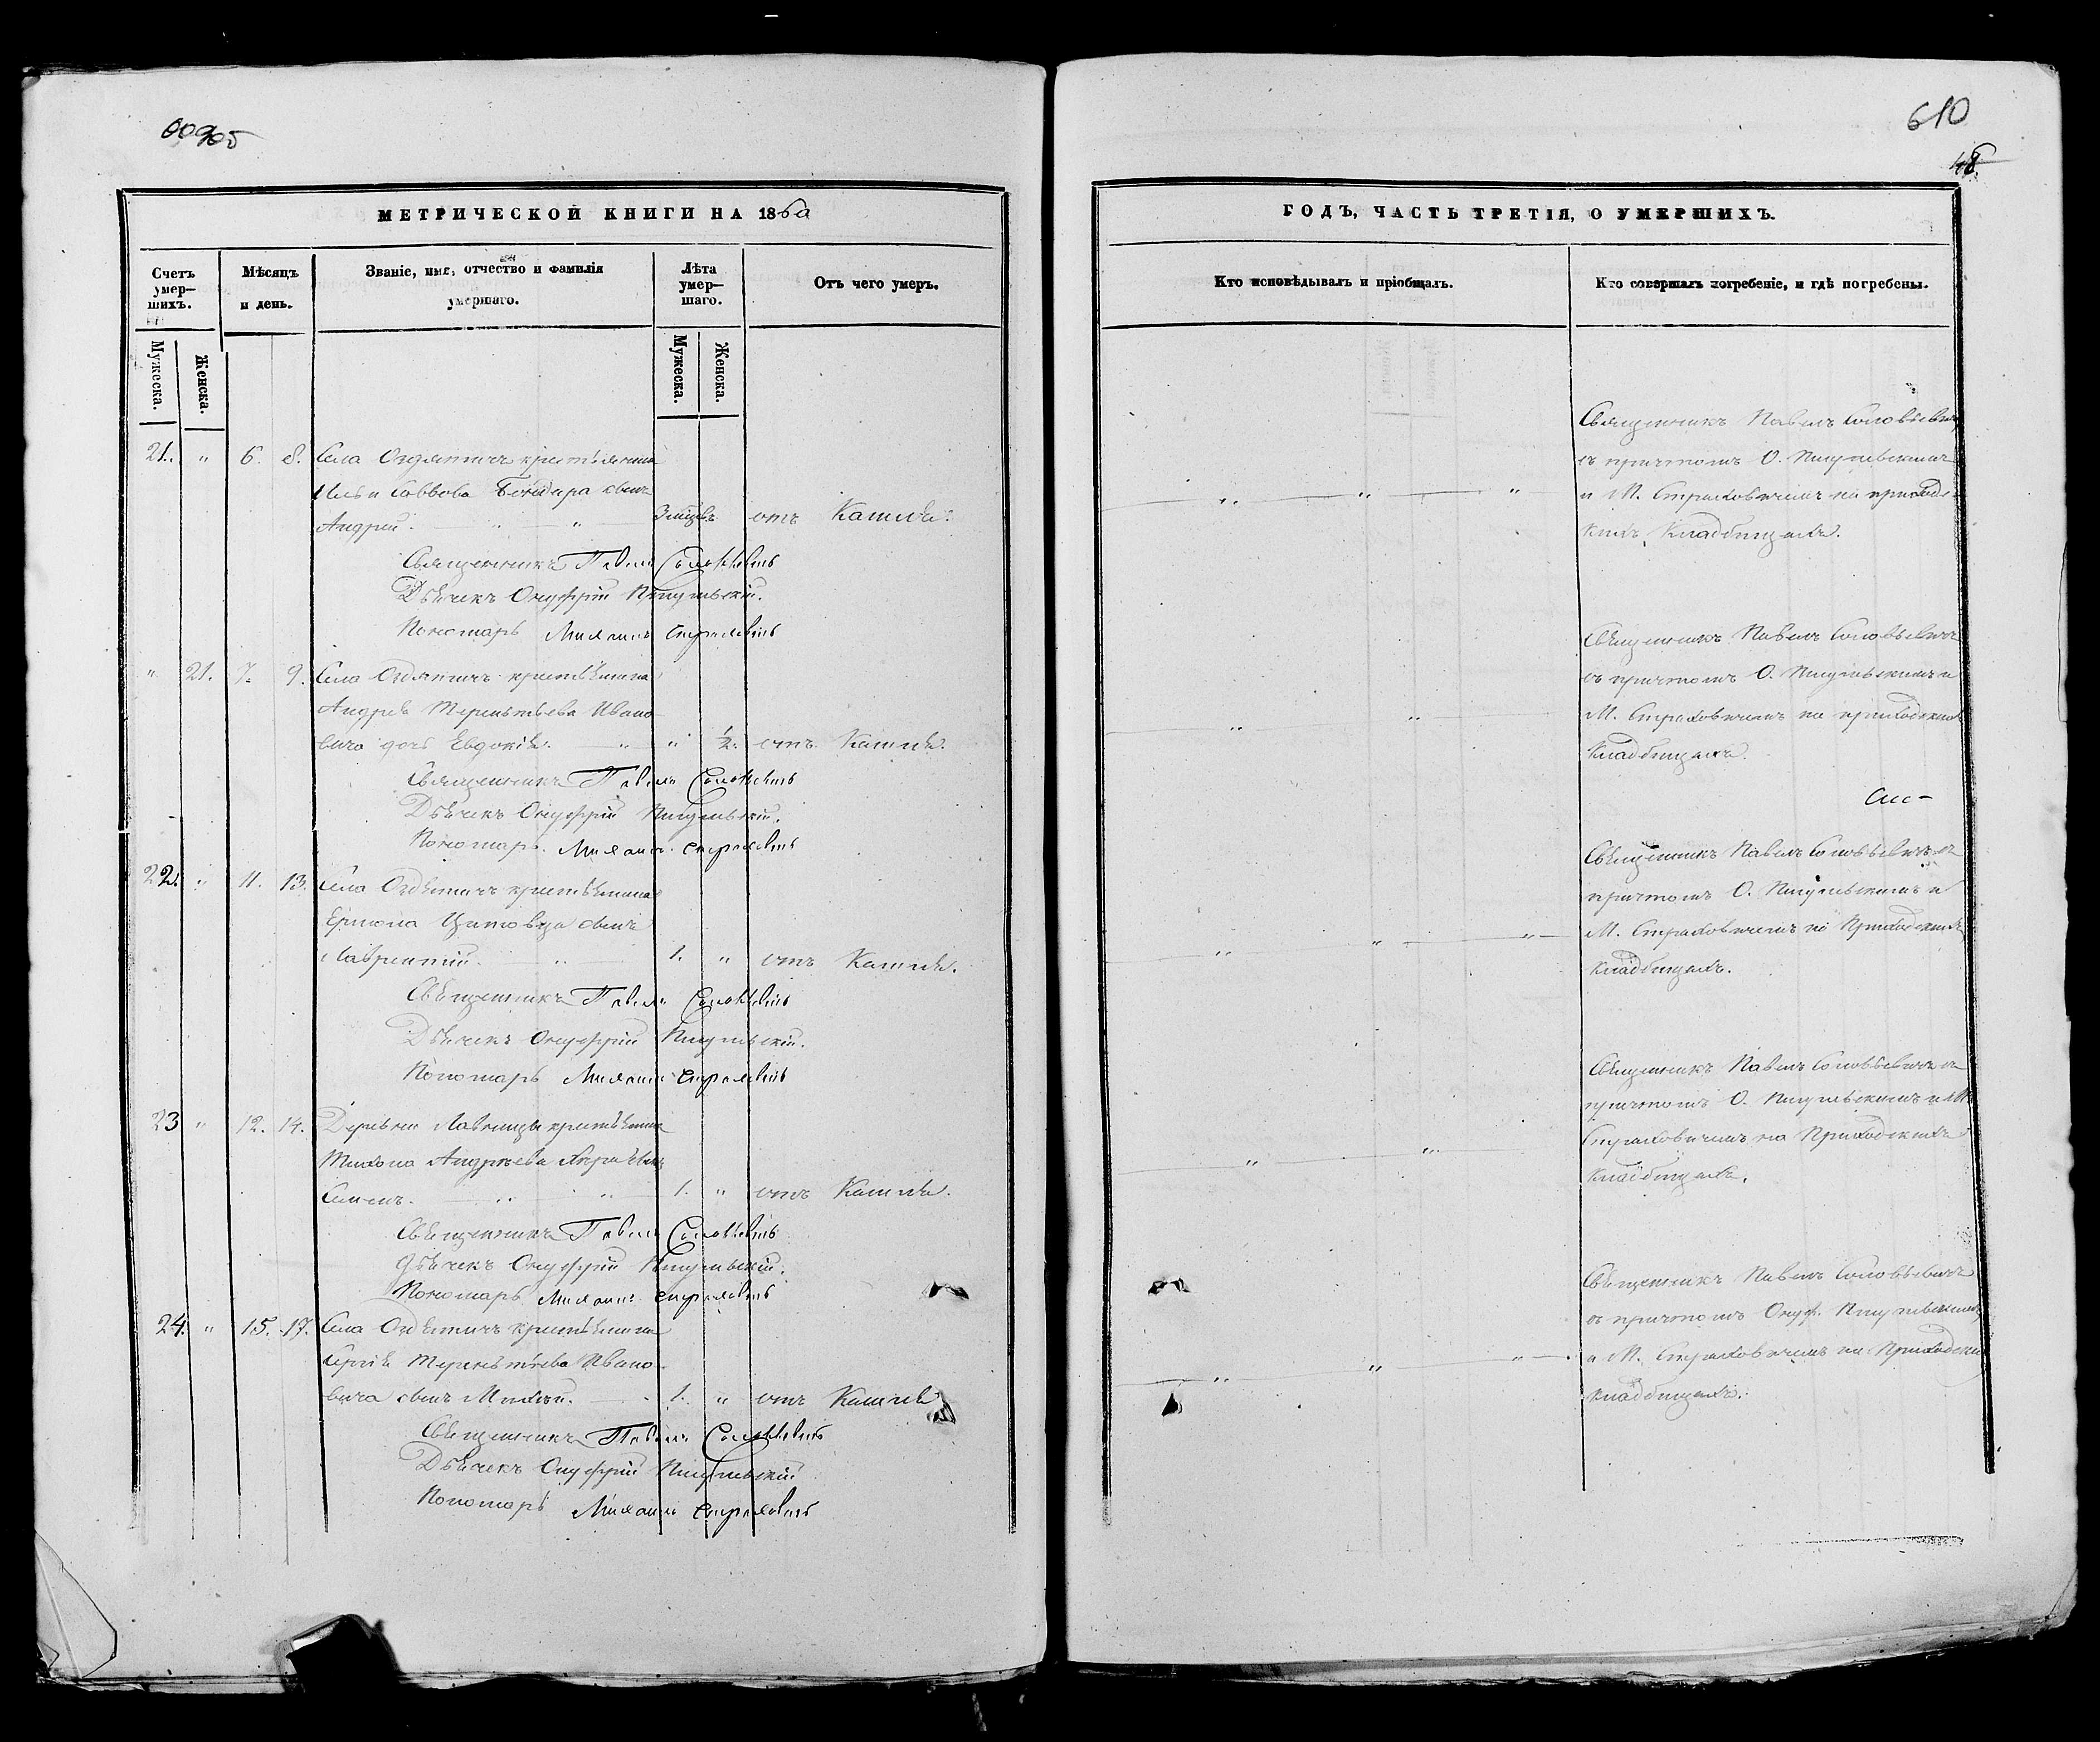 610
МЕТРИЧЕСКОЙ КНИГИ НА 1860
ГОДЪ, ЧАСТЬ ТРЕТІЯ, О УМЕРШИХЪ.
Счетъ умер—шихъ.
Мужеска.
Женска.
Мѣсяцъ и день.
Званіе, имя, отчество и фамилія умершаго.
Лѣта умер—шаго.
Мужеска.
Женска.
Отъ чего умеръ.
Кто исповѣдывалъ и пріобщалъ.
Кто совершалъ погребеніе, и гдѣ погребены.
21. " 6. 8. Села Оздятичъ крестьянина
Ильи Саввова Бондара сынъ
Андрей. " 3 мѣцѣвъ отъ Кашля.
Священникъ Павелъ Соловьевичъ
Дьячекъ Онуфрій Пигулевскій.
Пономарь Михаилъ Страховичъ
Священникъ Павелъ Соловьевичъ
съ причтомъ О. Пигулевскимъ
и М. Страховичемъ на приход-
скихъ Кладбищахъ.
" 21. 7. 9. Села Оздятичъ крестьянина
Андрея Терентьева Ивано-
вича дочь Евдокія. " " 1/2. отъ Кашля.
Священникъ Павелъ Соловьевичъ
Дьячекъ Онуфрій Пигулевскій.
Пономарь Михаилъ Страховичъ
Священникъ Павелъ Соловьевичъ
съ причтомъ О. Пигулевскимъ и
М. Страховичемъ на приходскихъ
Кладбищахъ.
22. " 11. 13. Села Оздятичъ крестьянина
Ермола Цитовца сынъ
Лаврентій. " 1. " отъ Кашля.
Священникъ Павелъ Соловьевичъ
Дьячекъ Онуфрій Пигулевскій.
Пономарь Михаилъ Страховичъ
Священникъ Павелъ Соловьевичъ съ
причтомъ О. Пигулевскимъ и
М. Страховичемъ на Приходскихъ
Кладбищахъ.
23 " 12. 14. Деревни Лавницы крестьянина
Тихона Андреева сынъ
Семенъ. " " 1. " отъ Кашля.
Священникъ Павелъ Соловьевичъ
Дьячекъ Онуфрій Пигулевскій.
Пономарь Михаилъ Страховичъ
Священникъ Павелъ Соловьевичъ съ
причтомъ О. Пигулевскимъ и М.
Страховичемъ на Приходскихъ
Кладбищахъ.
24. " 15. 17. Села Оздятичъ крестьянина
Сергія Терентьева Ивано-
вича сынъ Михей. 1. " отъ Кашля
Священникъ Павелъ Соловьевичъ
Дьячекъ Онуфрій Пигулевскій
Пономарь Михаилъ Страховичъ
Священникъ Павелъ Соловьевичъ
съ причтомъ Онуф. Пигулевскимъ
и М. Страховичемъ на Приходскихъ
Кладбищахъ.